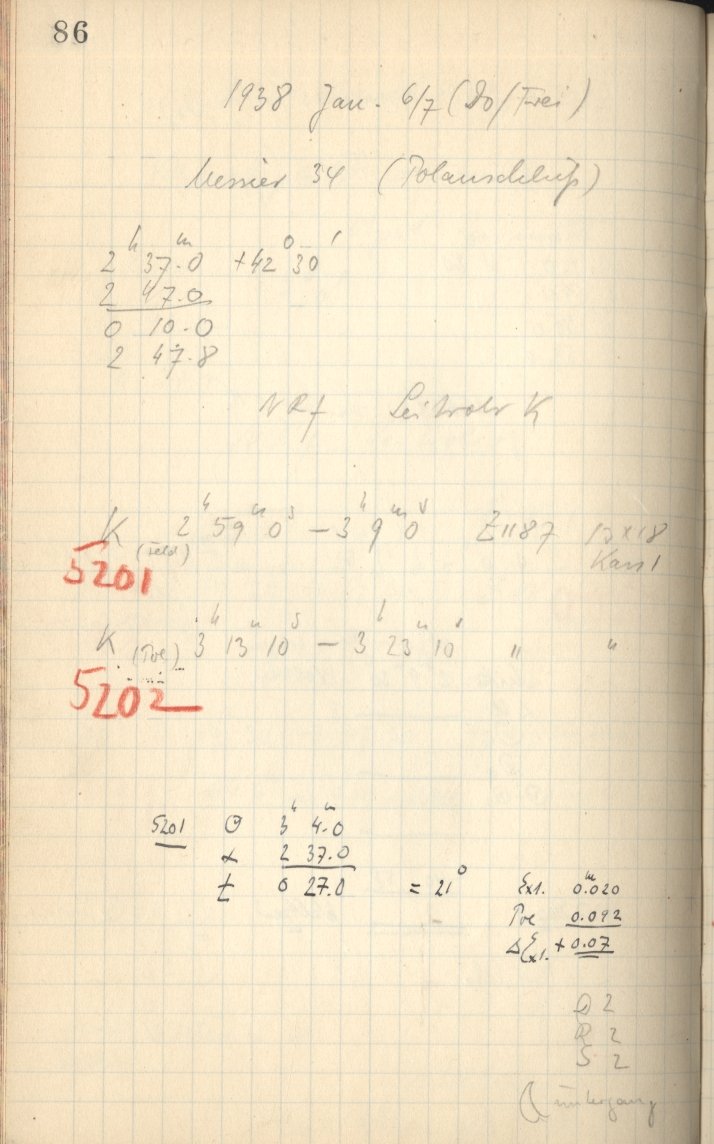 86
1938 Jan. 6/7 (Do/Frei)
Messier 34 (Polanschluß)
2ʰ 37.ᵐ0 +42° 30'
2 47.0
0 10.0
2 47.8
Leitrohr K
K (Feld) 2ʰ 59ᵐ 0ˢ — 3ʰ 9ᵐ 0ˢ Z1187 13x18
5201
K (Pol) 3ʰ 13ᵐ 10ˢ — 3ʰ 23ᵐ 10ˢ " "
5202
5201 Θ 3ʰ 4.ᵐ0
α 2 37.0
t 0 27.0 = 21° Ext. 0.ᵐ020
Pol 0.092
Δ Ext. + 0.07
D 2
R 2
S 2
untergang